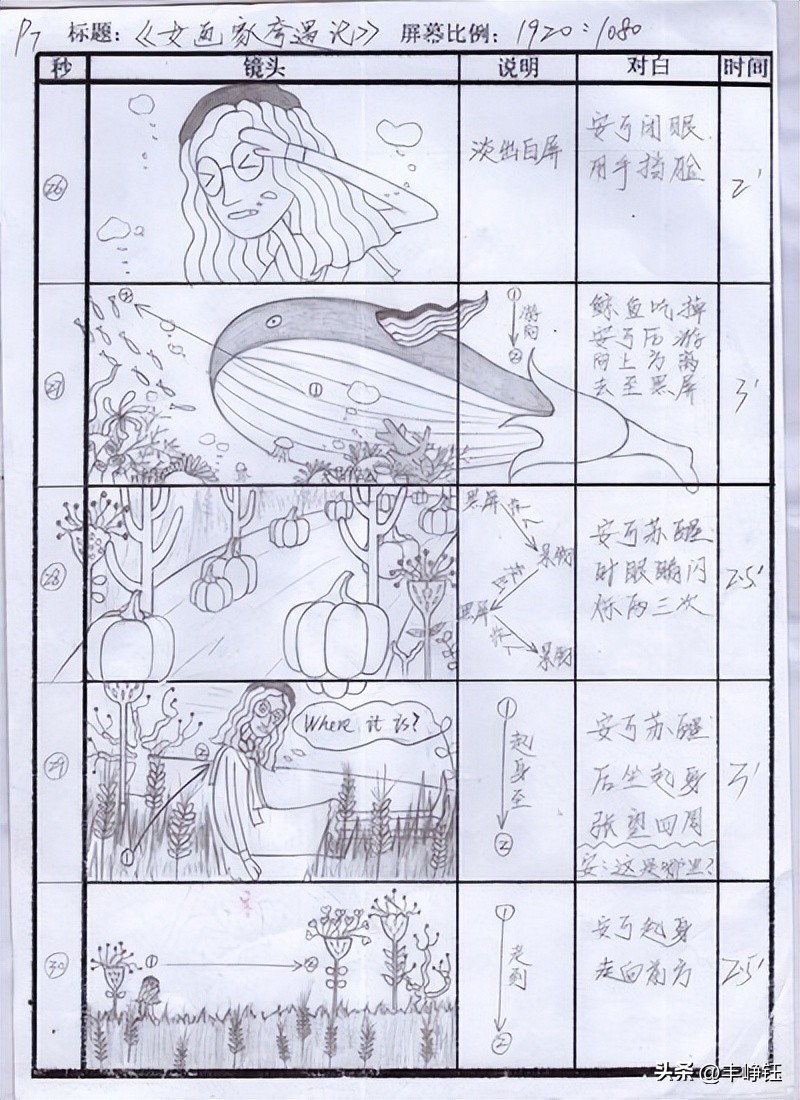 P7 标题：《女画家奇遇记》 屏幕比例：1920：1080
秒 镜头 说明 对白 时间
26
淡出白屏
安丐闭眼
用手挡脸
2'
27
②
①
① 游向 ②
鲸鱼吃掉
安丐后游
向上方离
去至黑屏
3'
28
黑屏
渐入
景物
黑屏
渐入
景物
安丐苏醒
时眼睛闪
烁两三次
2.5'
29
Where it is?
②
①
① 起身至 ②
安丐苏醒
后坐起身
张望四周
安：这是哪里？
3'
30
① ②
① 走到 ②
安丐起身
走向前方
2.5'
头条 @丰峥钰